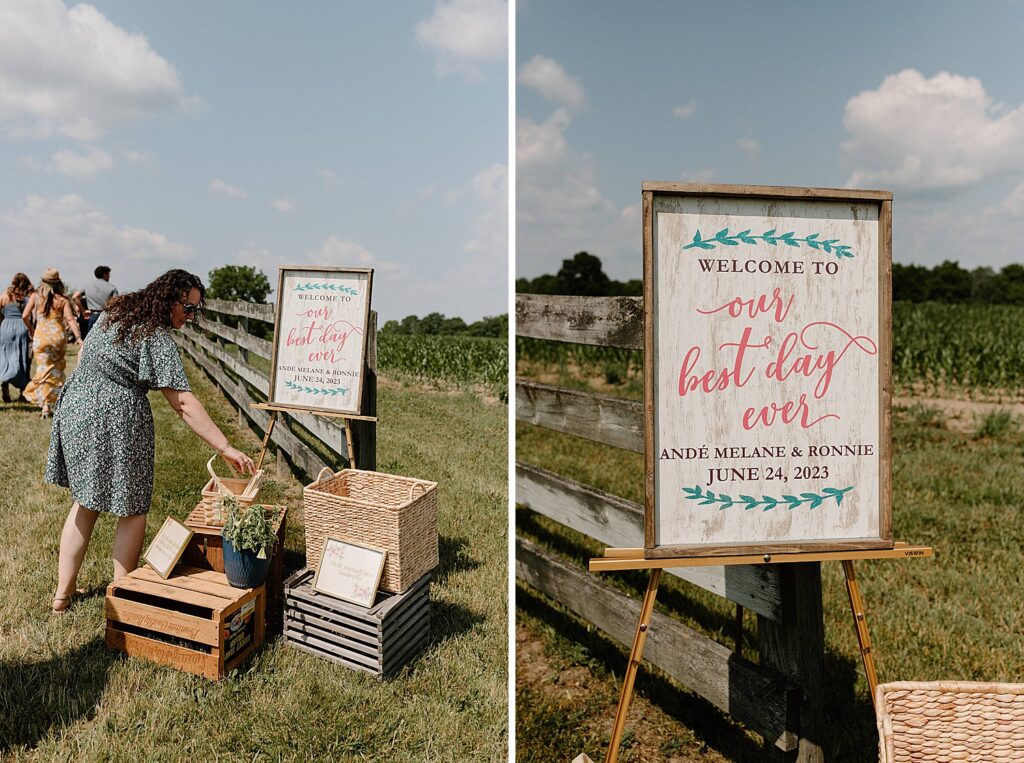 WELCOME TO
our
best day
ever
ANDÉ MELANE & RONNIE
JUNE 24, 2023
WELCOME TO
our
best day
ever
ANDÉ MELANE & RONNIE
JUNE 24, 2023
VISWIN